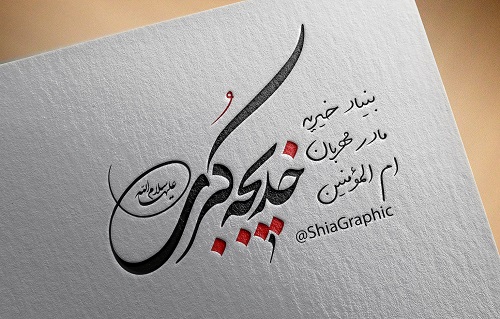 بنیاد خیریه
مادر مهربان
ام المؤمنین
خدیجه کبری
علیها سلام الله
@ShiaGraphic